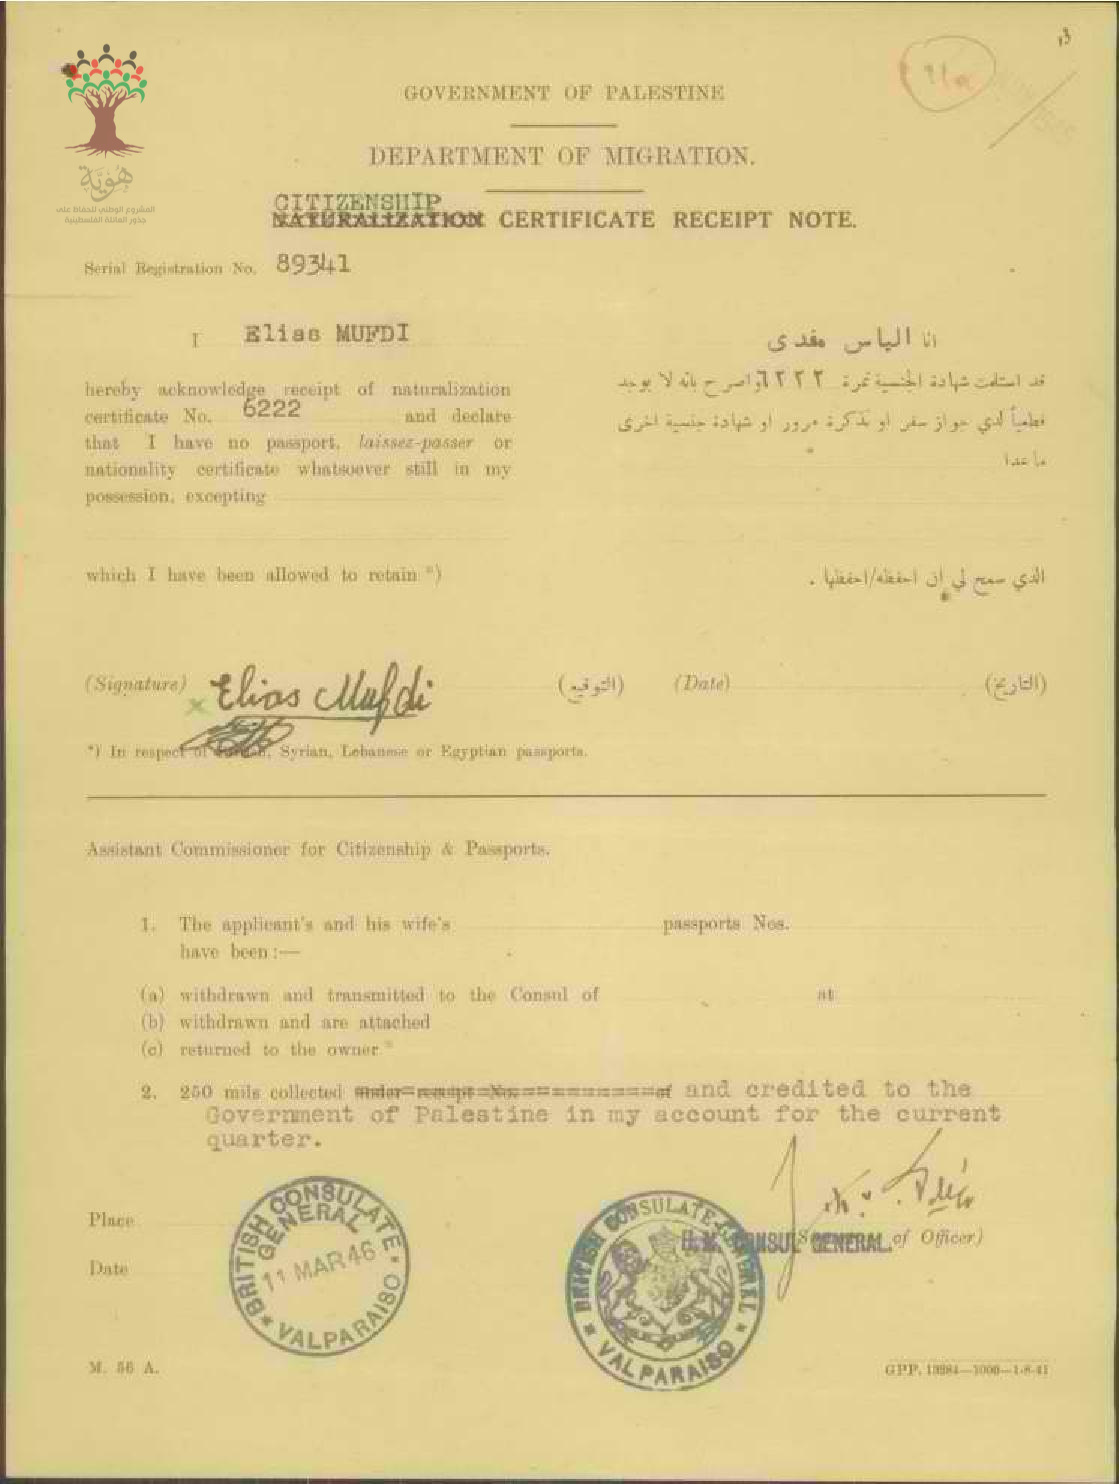 13
91a
GOVERNMENT OF PALESTINE
DEPARTMENT OF MIGRATION.
هُويّة
المشروع الوطني للحفاظ على
جذور العائلة الفلسطينية
CITIZENSHIP
NATURALIZATION CERTIFICATE RECEIPT NOTE.
Serial Registration No. 89341
I Elias MUFDI
hereby acknowledge receipt of naturalization
certificate No. 6222 and declare
that I have no passport, laissez-passer or
nationality certificate whatsoever still in my
possession, excepting
which I have been allowed to retain *)
انا الياس مفدى
قد استلمت شهادة الجنسية نمرة ٦٢٢٢ واصرح بانه لا يوجد
قطعياً لدي جواز سفر او تذكرة مرور او شهادة جنسية اخرى
ما عدا
الذي سمح لي ان احفظه/احفظها .
(Signature) x Elias Mufdi (التوقيع) (Date) (التاريخ)
*) In respect of Syrian, Lebanese or Egyptian passports.
Assistant Commissioner for Citizenship & Passports.
1. The applicant's and his wife's passports Nos.
have been :—
(a) withdrawn and transmitted to the Consul of at
(b) withdrawn and are attached
(c) returned to the owner *
2. 250 mils collected under receipt No. of and credited to the
Government of Palestine in my account for the current
quarter.
Place
Date
BRITISH CONSULATE GENERAL
11 MAR 46
VALPARAISO
BRITISH CONSULATE-GENERAL
VALPARAISO
H.M. CONSUL GENERAL.
of Officer)
M. 56 A.
GPP. 13284—1000—1-8-41